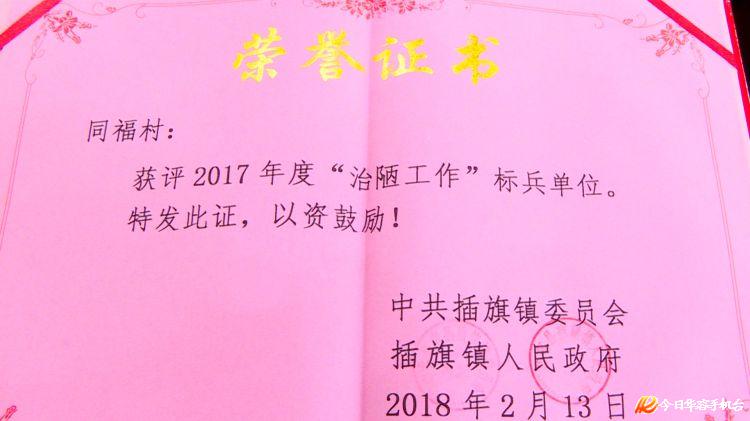 荣誉证书
同福村：
获评2017年度“治陋工作”标兵单位。
特发此证，以资鼓励！
中共插旗镇委员会
插旗镇人民政府
2018年2月13日
今日华容手机台